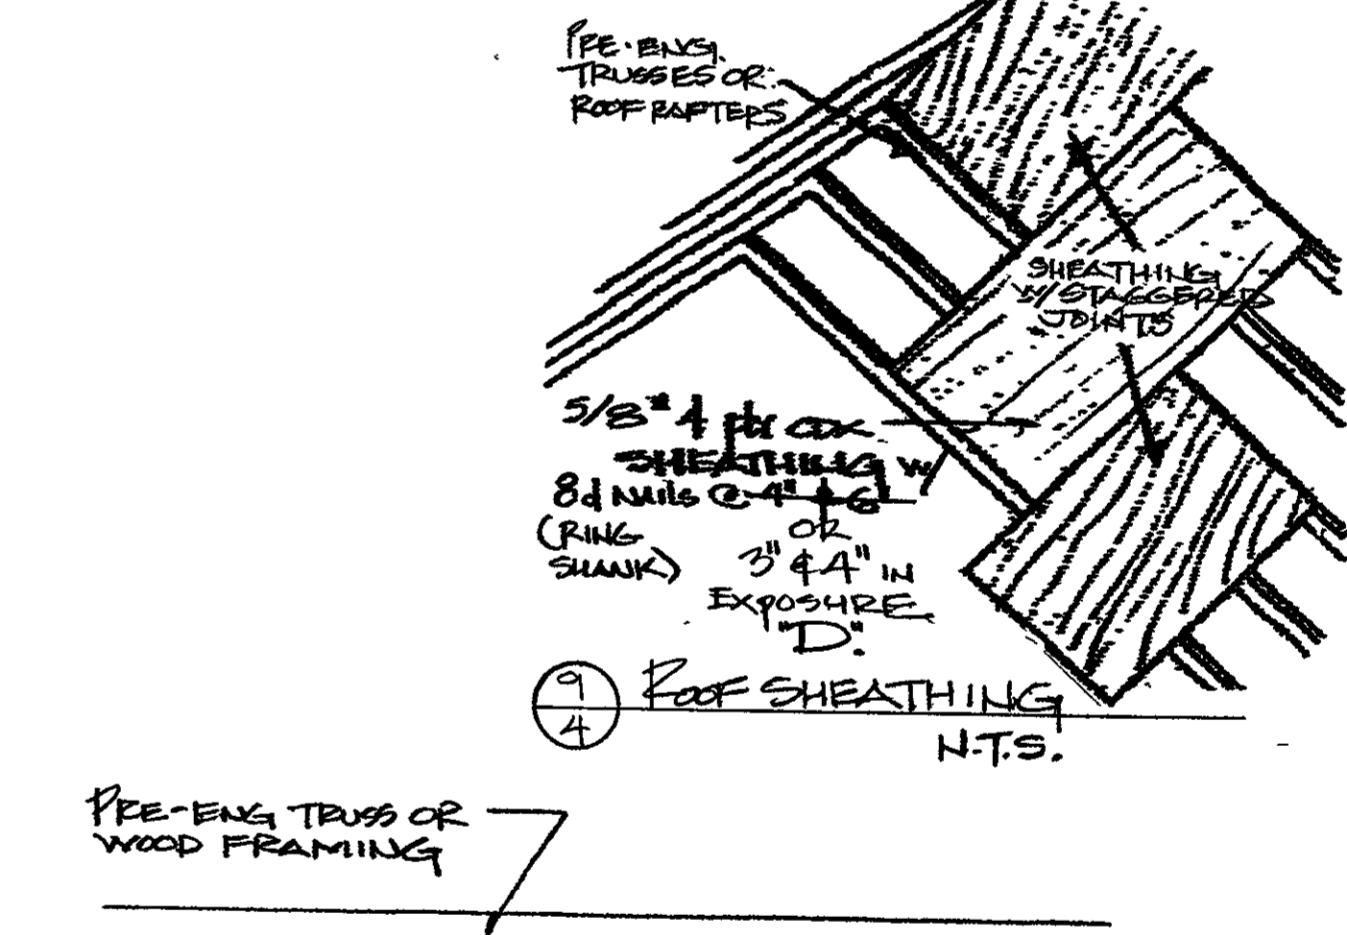 PRE-ENG.
TRUSSES OR
ROOF RAFTERS
SHEATHING
W/ STAGGERED
JOINTS
5/8" 4 ply CDX
SHEATHING W/
8d Nails @ 4" & 6"
(RING
SHANK)
OR
3" & 4" IN
EXPOSURE
"D".
9
4
ROOF SHEATHING
N.T.S.
PRE-ENG TRUSS OR
WOOD FRAMING